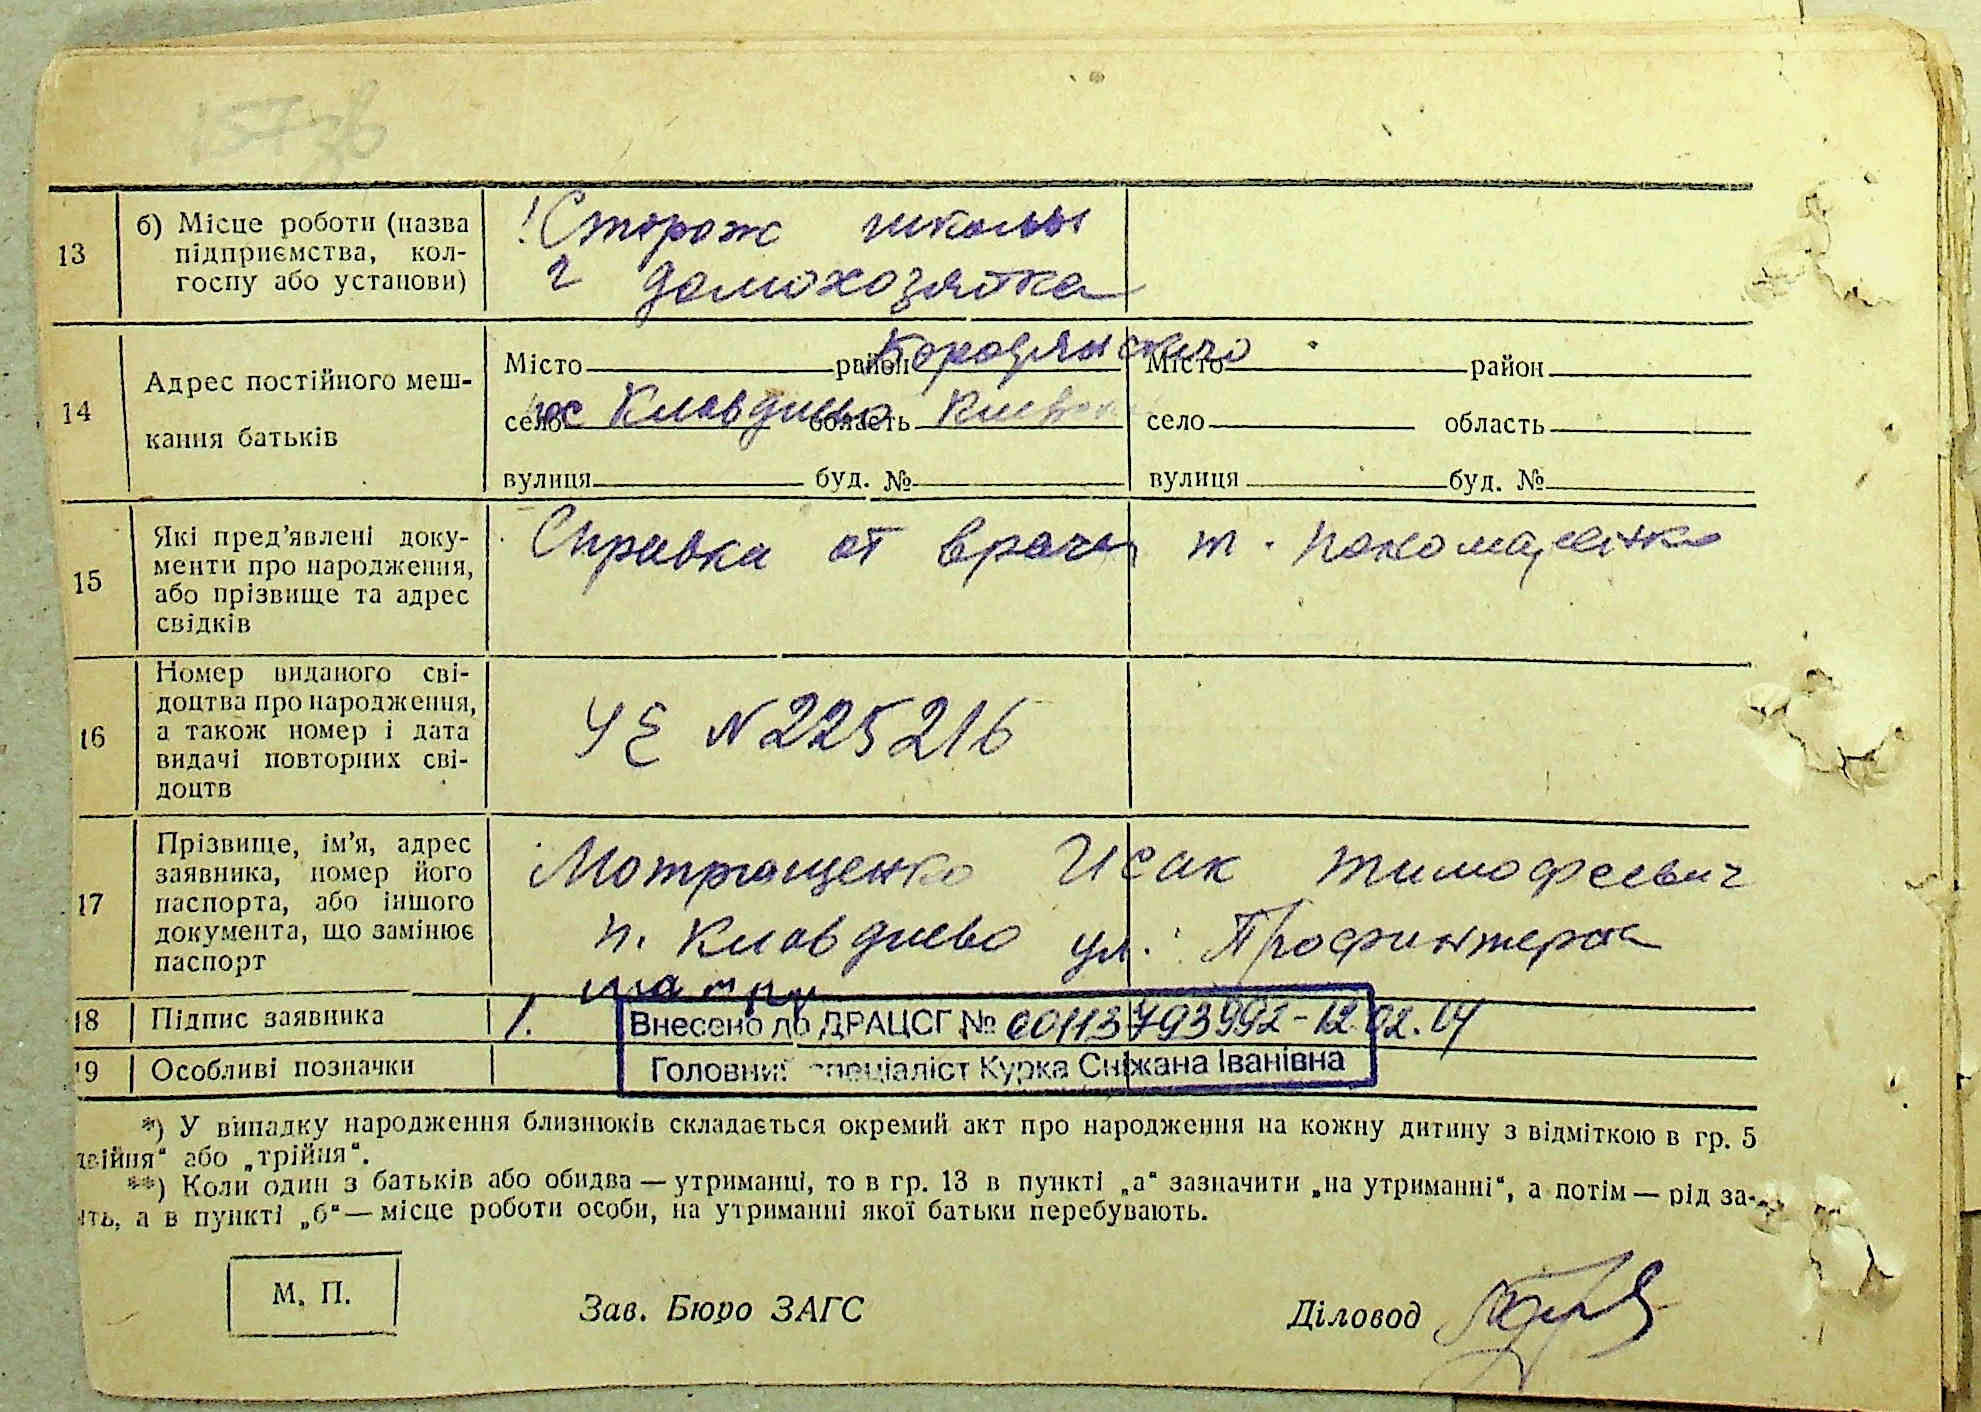 157 зв
13 б) Місце роботи (назва підприємства, колгоспу або установи) 1 Сторож школы
2 домохозяйка
Бородянского
14 Адрес постійного мешкання батьків Місто район Місто район
село пос Клавдиево область Киевск село область
вулиця буд. № вулиця буд. №
15 Які пред'явлені документи про народження, або прізвище та адрес свідків Справка от врача т. Пономаренко
16 Номер виданого свідоцтва про народження, а також номер і дата видачі повторних свідоцтв УЕ N 225216
17 Прізвище, ім'я, адрес заявника, номер його паспорта, або іншого документа, що замінює паспорт Мотрощенко Исак Тимофеевич
п. Клавдиево ул. Профинтерна
18 Підпис заявника 1.
Внесено до ДРАЦСГ № 00113793992-12.02.14
19 Особливі позначки
Головний спеціаліст Курка Сніжана Іванівна
*) У випадку народження близнюків складається окремий акт про народження на кожну дитину з відміткою в гр. 5
двійня" або „трійня".
**) Коли один з батьків або обидва — утриманці, то в гр. 13 в пункті „а" зазначити „на утриманні", а потім — рід за-
ять, а в пункті „б" — місце роботи особи, на утриманні якої батьки перебувають.
М. П. Зав. Бюро ЗАГС Діловод